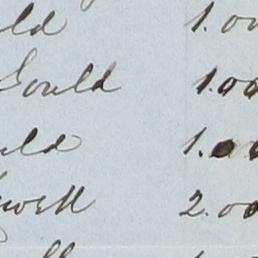 ld 1.00
Gould 1.00
uld 1.00
well 2.00